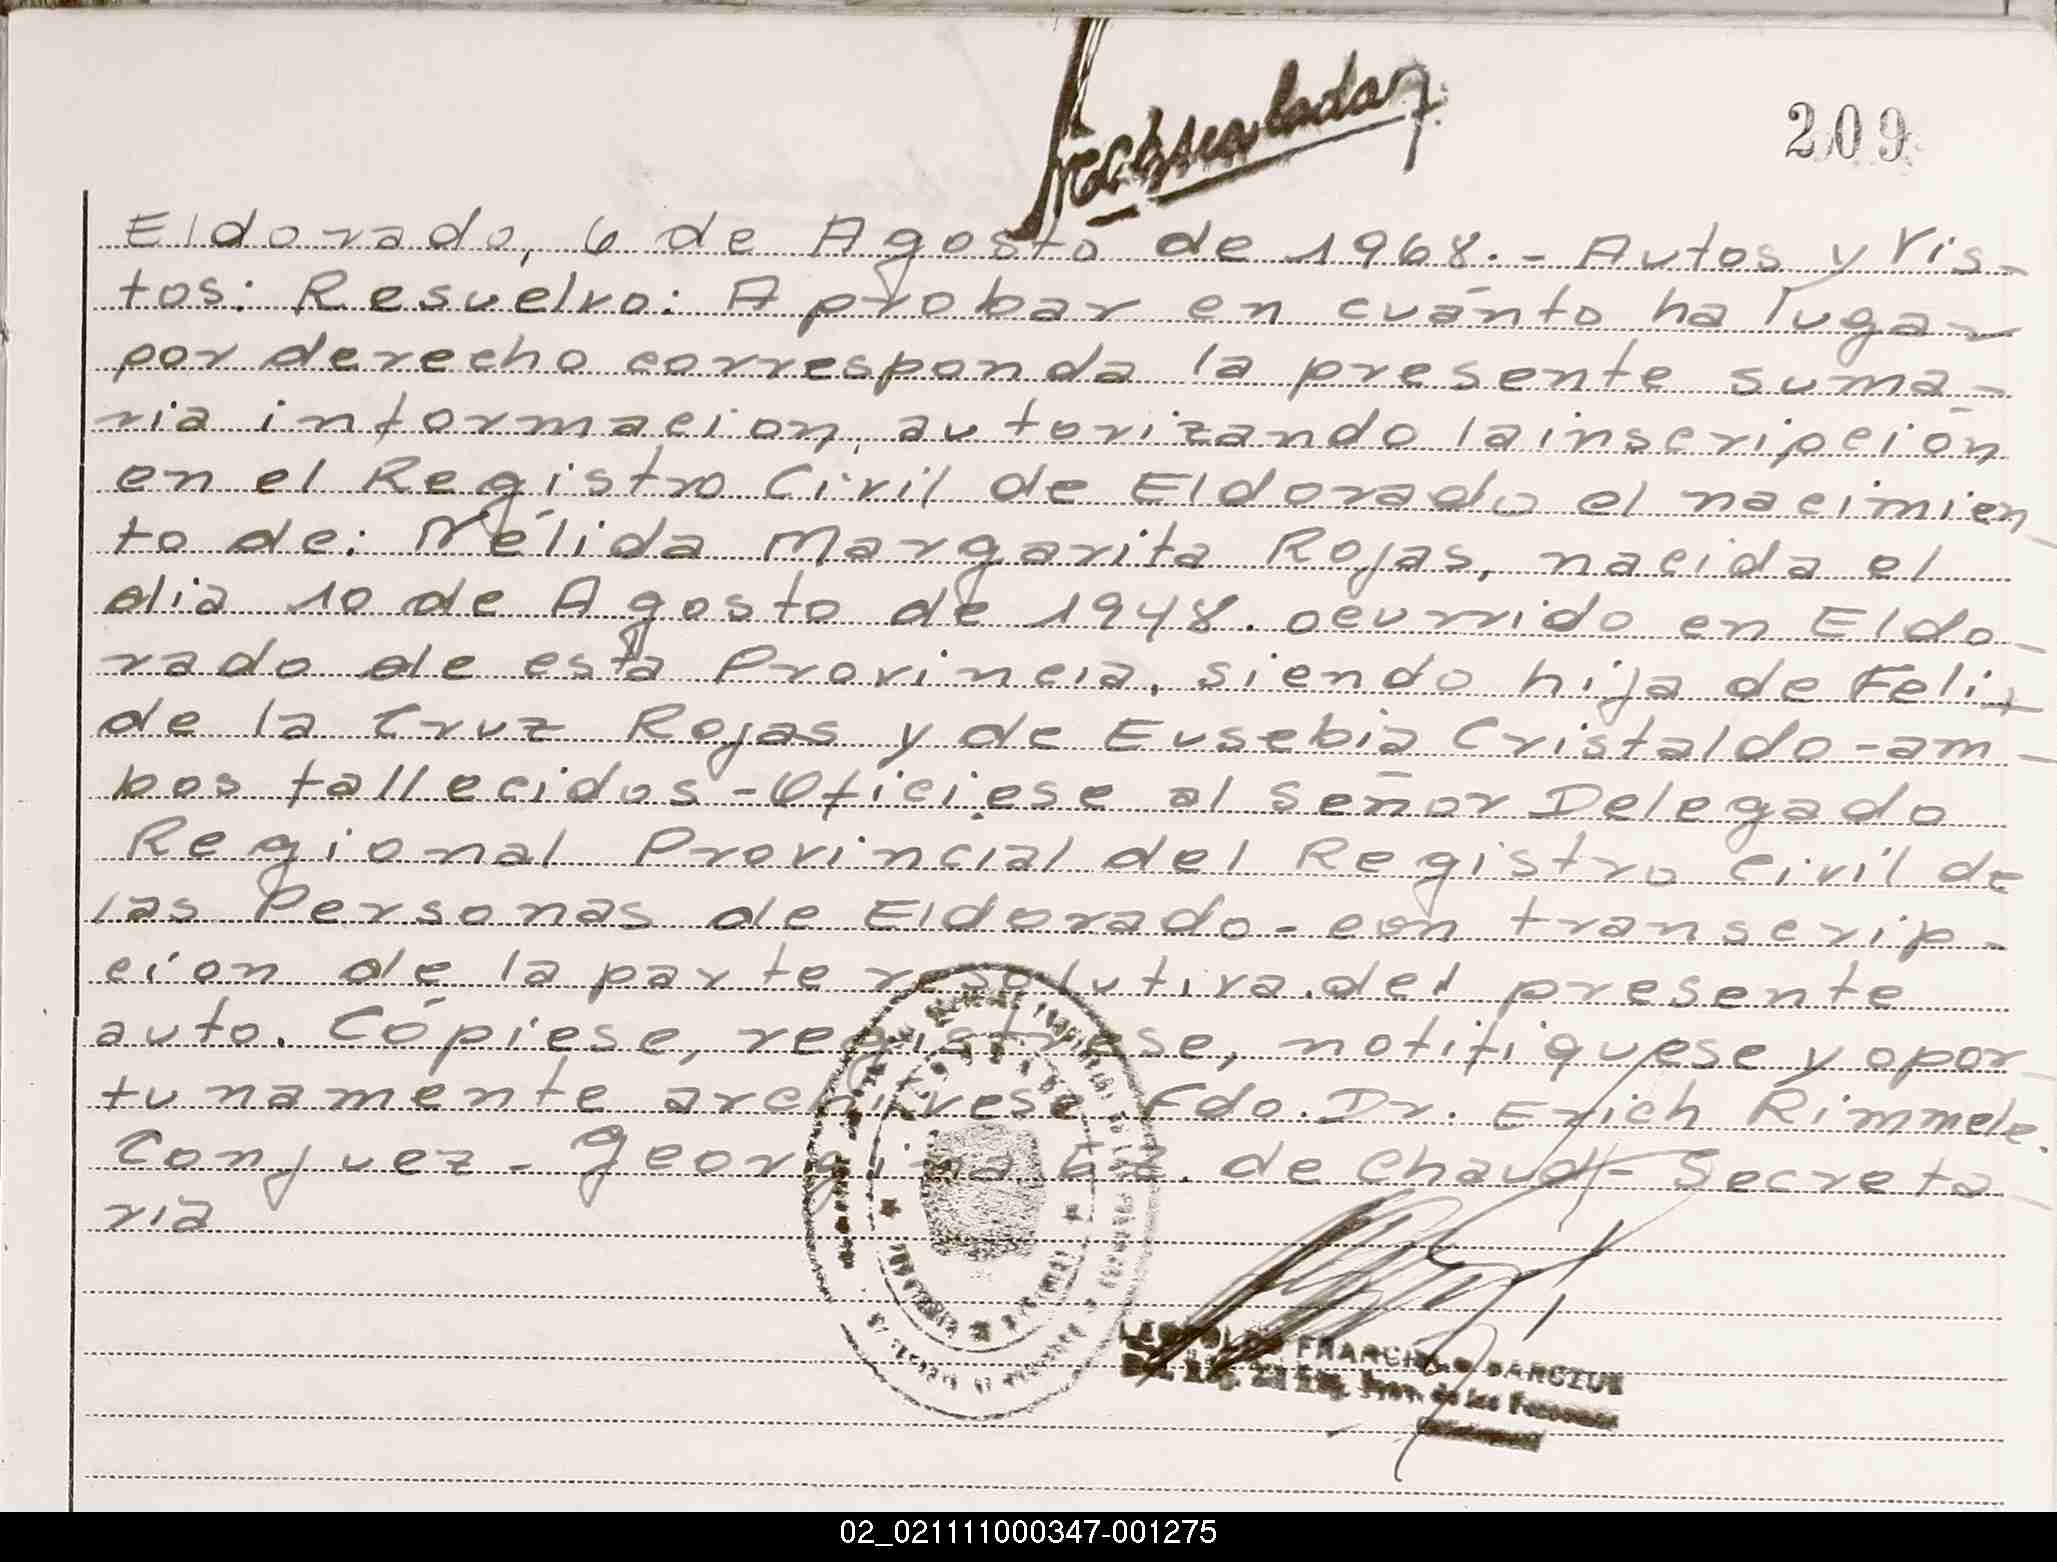 209
Eldorado, 6 de Agosto de 1968.- Autos y Vis-
tos: Resuelvo: Aprobar en cuánto ha lugar
por derecho corresponda la presente suma-
ria informacion, autorizando la inscripción
en el Registro Civil de Eldorado el nacimien-
to de: Nélida Margarita Rojas, nacida el
dia 10 de Agosto de 1948. ocurrido en Eldo-
rado de esta Provincia, siendo hija de Felix
de la Cruz Rojas y de Eusebia Cristaldo-am-
bos fallecidos-Oficiese al señor Delegado
Regional Provincial del Registro Civil de
las Personas de Eldorado-con transcrip-
cion de la parte resolutiva.del presente
auto. Cópiese, registrese, notifiquese y opor-
tunamente archivese Fdo. Dr. Erich Rimmele.
Conjuez- Georgina de Chaud- Secreta-
ria
FRANCISCO
Reg. de las Personas
02_021111000347-001275